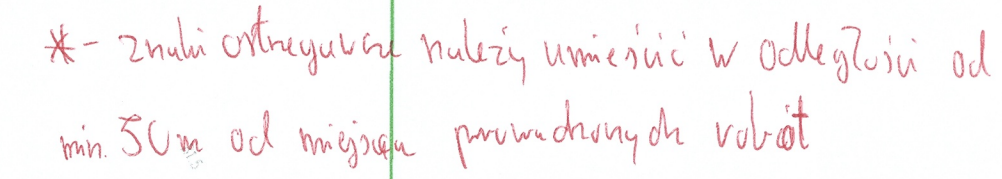 * - znaki ostrzegawcze należy umieścić w odległości od
min. 50m od miejsca prowadzonych robót